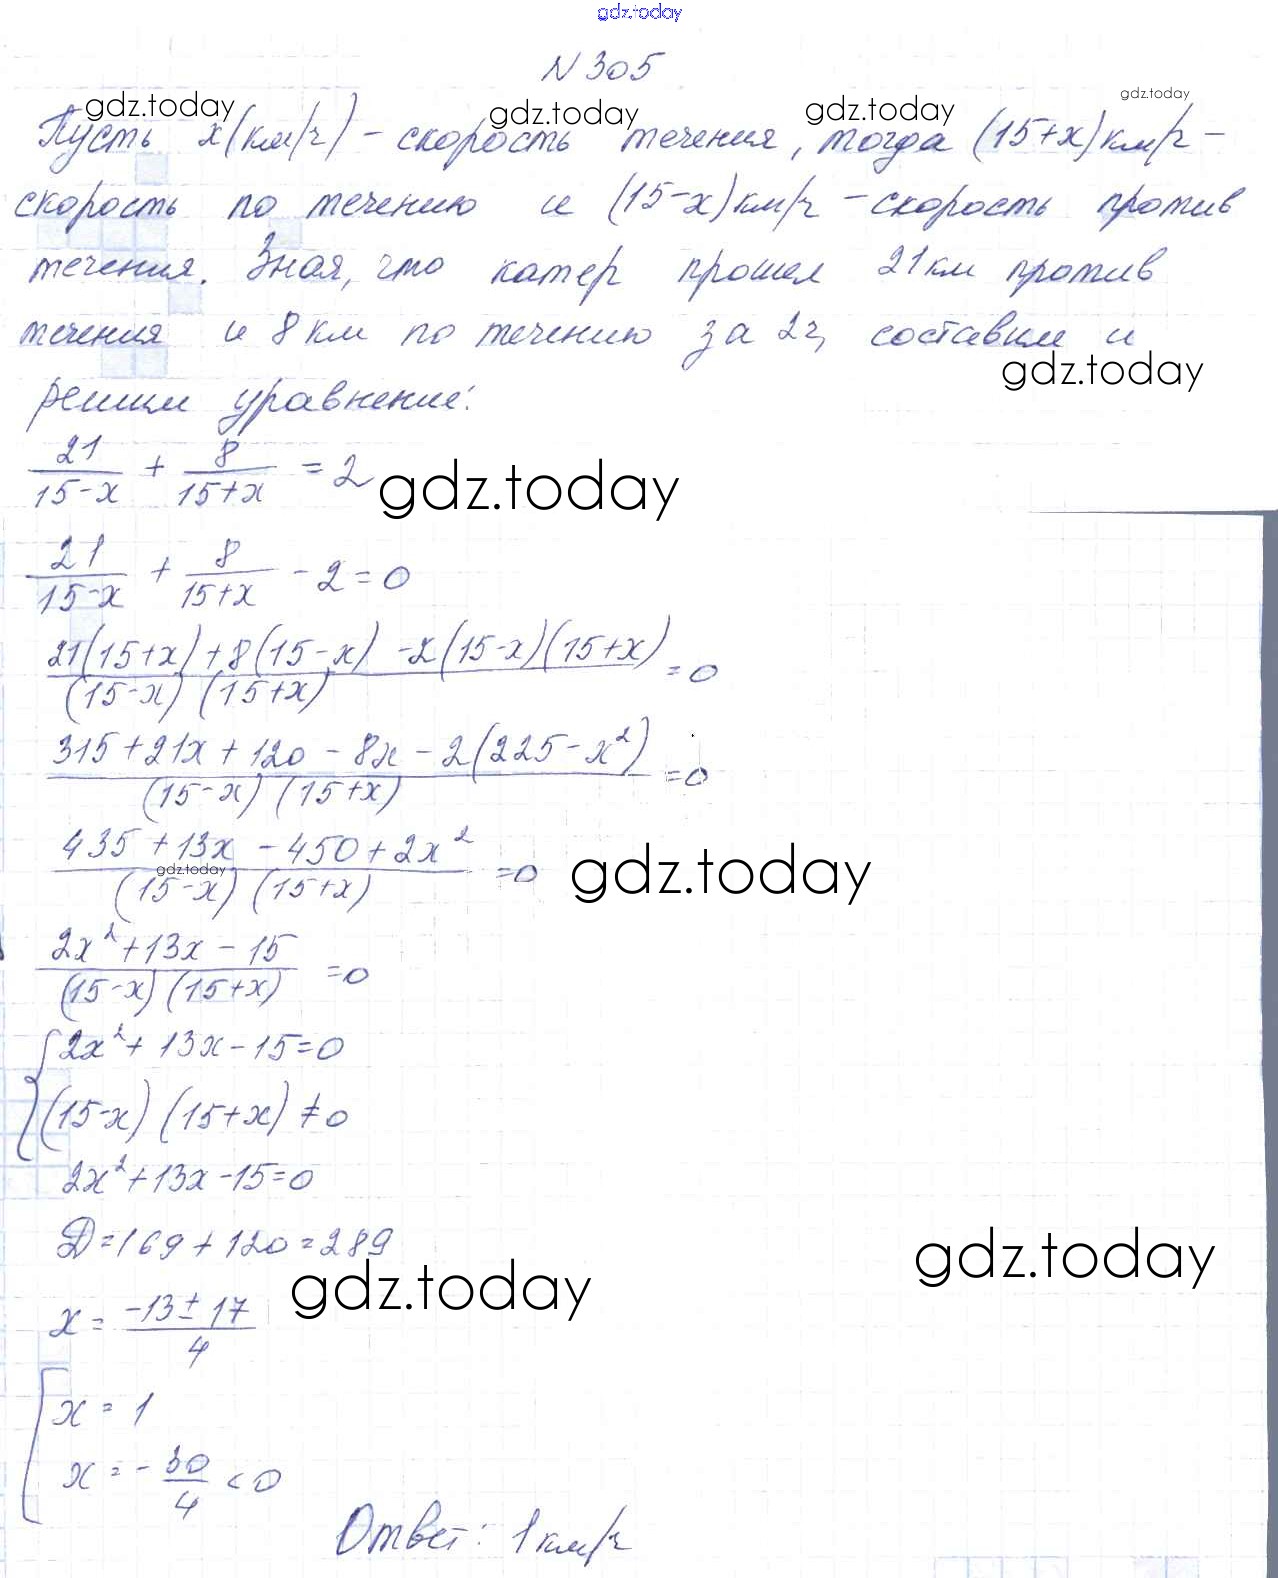 gdz.today
N 305
gdz.today gdz.today gdz.today gdz.today
Пусть x(км/ч) - скорость течения, тогда (15+x) км/ч -
скорость по течению и (15-x) км/ч - скорость против
течения. Зная, что катер прошел 21 км против
течения и 8 км по течению за 2ч, составим и
gdz.today
решим уравнение:
21/(15-x) + 8/(15+x) = 2
gdz.today
21/(15-x) + 8/(15+x) - 2 = 0
(21(15+x) + 8(15-x) - 2(15-x)(15+x))/((15-x)(15+x)) = 0
(315 + 21x + 120 - 8x - 2(225 - x²))/((15-x)(15+x)) = 0
(435 + 13x - 450 + 2x²)/((15-x)(15+x)) = 0
gdz.today gdz.today
(2x² + 13x - 15)/((15-x)(15+x)) = 0
{ 2x² + 13x - 15 = 0
(15-x)(15+x) ≠ 0
2x² + 13x - 15 = 0
D = 169 + 120 = 289
gdz.today gdz.today
x = (-13 ± 17)/4
[ x = 1
x = - 30/4 < 0
Ответ: 1 км/ч